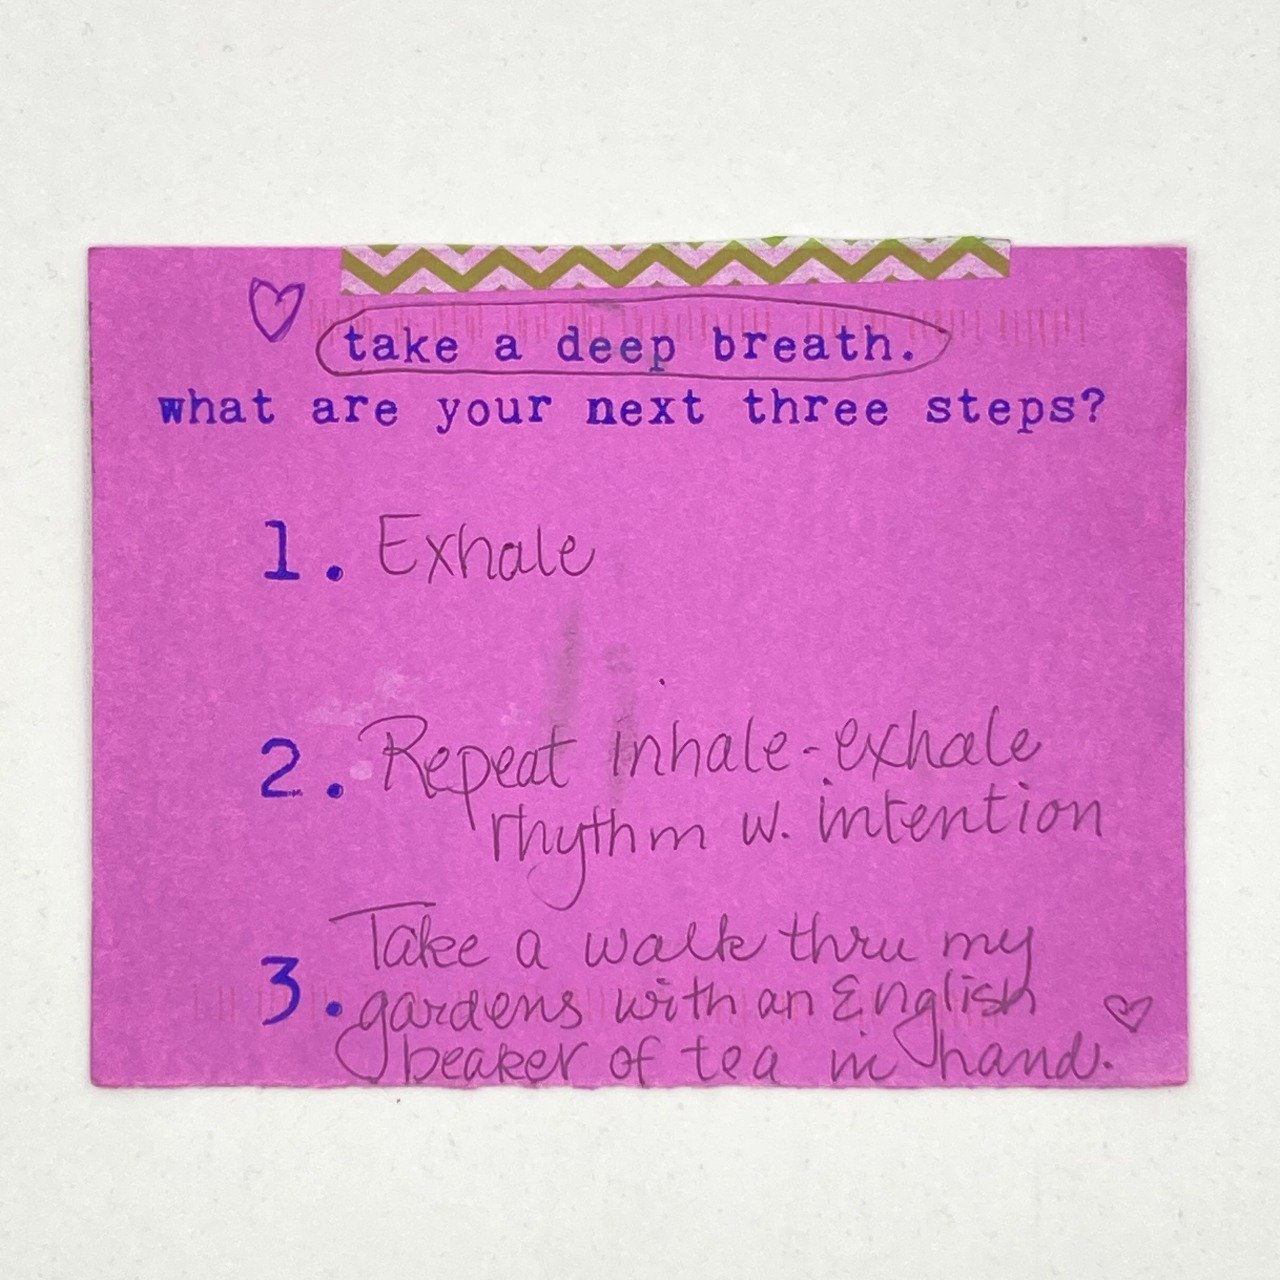 take a deep breath.
what are your next three steps?
1. Exhale
2. Repeat inhale-exhale
rhythm w. intention
3. Take a walk thru my
gardens with an English
beaker of tea in hand.